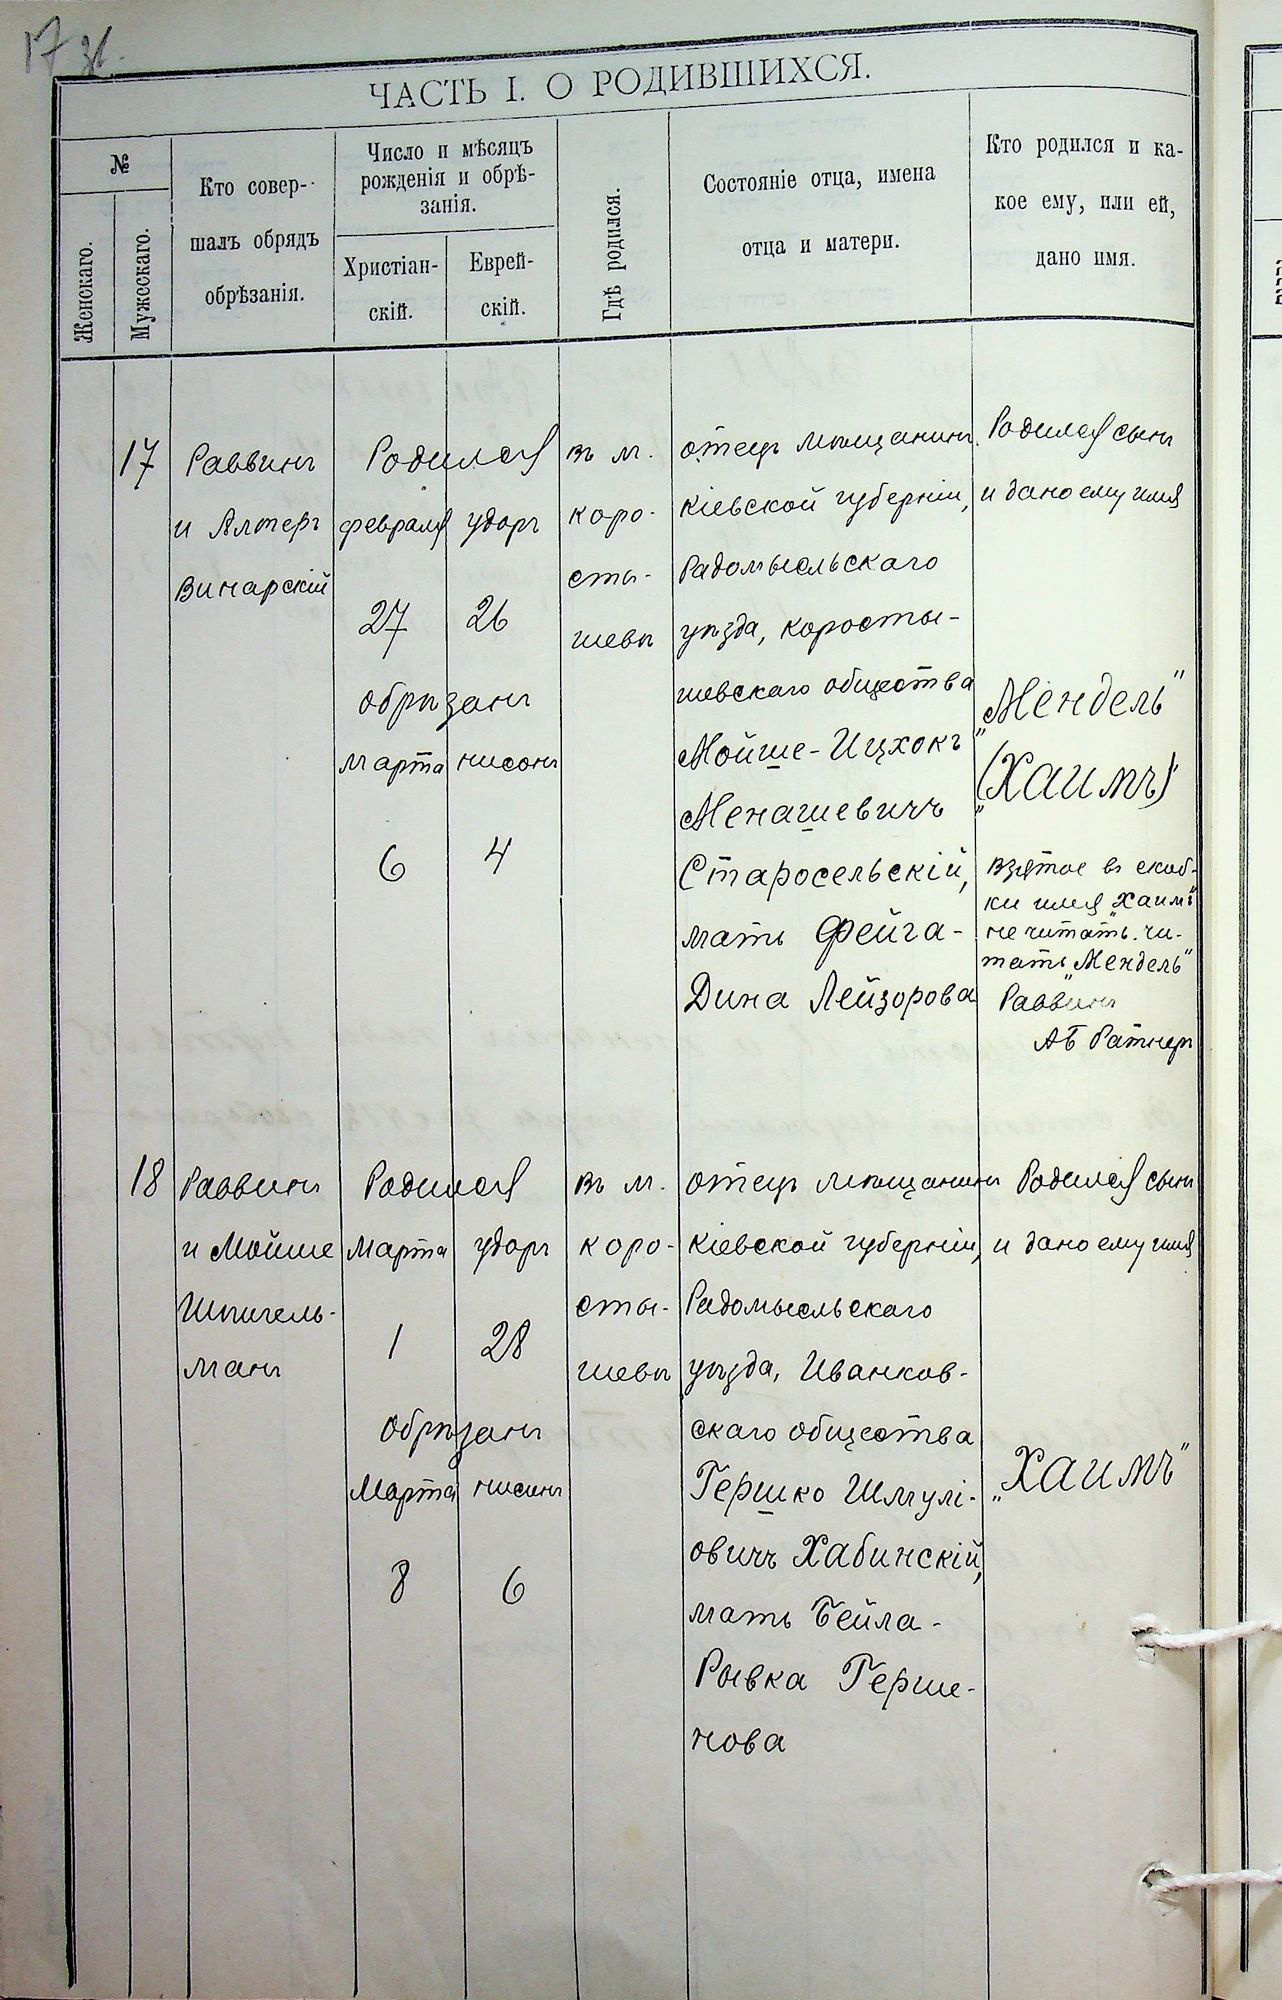 17
ЧАСТЬ I. О РОДИВШИХСЯ.
№
Женскаго.
Мужескаго.
Кто совер-
шалъ обрядъ
обрѣзанія.
Число и мѣсяцъ
рожденія и обрѣ-
занія.
Христіан-
скій.
Еврей-
скій.
Гдѣ родился.
Состояніе отца, имена
отца и матери.
Кто родился и ка-
кое ему, или ей,
дано имя.
17
Раввинъ
и Алтеръ
Винарскій
Родился
февраля удоръ
27 26
обрѣзанъ
марта нисонъ
6 4
въ м.
коро-
сты-
шевѣ
отецъ мѣщанинъ
кіевской губерніи,
Радомысльскаго
уѣзда, коросты-
шевскаго общества
Мойше-Ицхокъ
Менашевичъ
Старосельскій,
мать Фейга-
Дина Лейзорова
Родился сынъ
и дано ему имя
„Мендель"
„(Хаимъ)"
взятое въ скоб-
ки имя „Хаимъ"
не читать. чи-
тать „Мендель"
Раввинъ
АБ Ратнеръ
18
Раввинъ
и Мойше
Шпигель-
манъ
Родился
Марта удоръ
1 28
обрѣзанъ
Марта нисонъ
8 6
въ м.
коро-
сты-
шевѣ
отецъ мѣщанинъ
кіевской губерніи,
Радомысльскаго
уѣзда, Иванков-
скаго общества
Гершко Шмулі-
овичъ Хабинскій,
мать Бейла-
Рывка Герше-
нова
Родился сынъ
и дано ему имя
„Хаимъ"